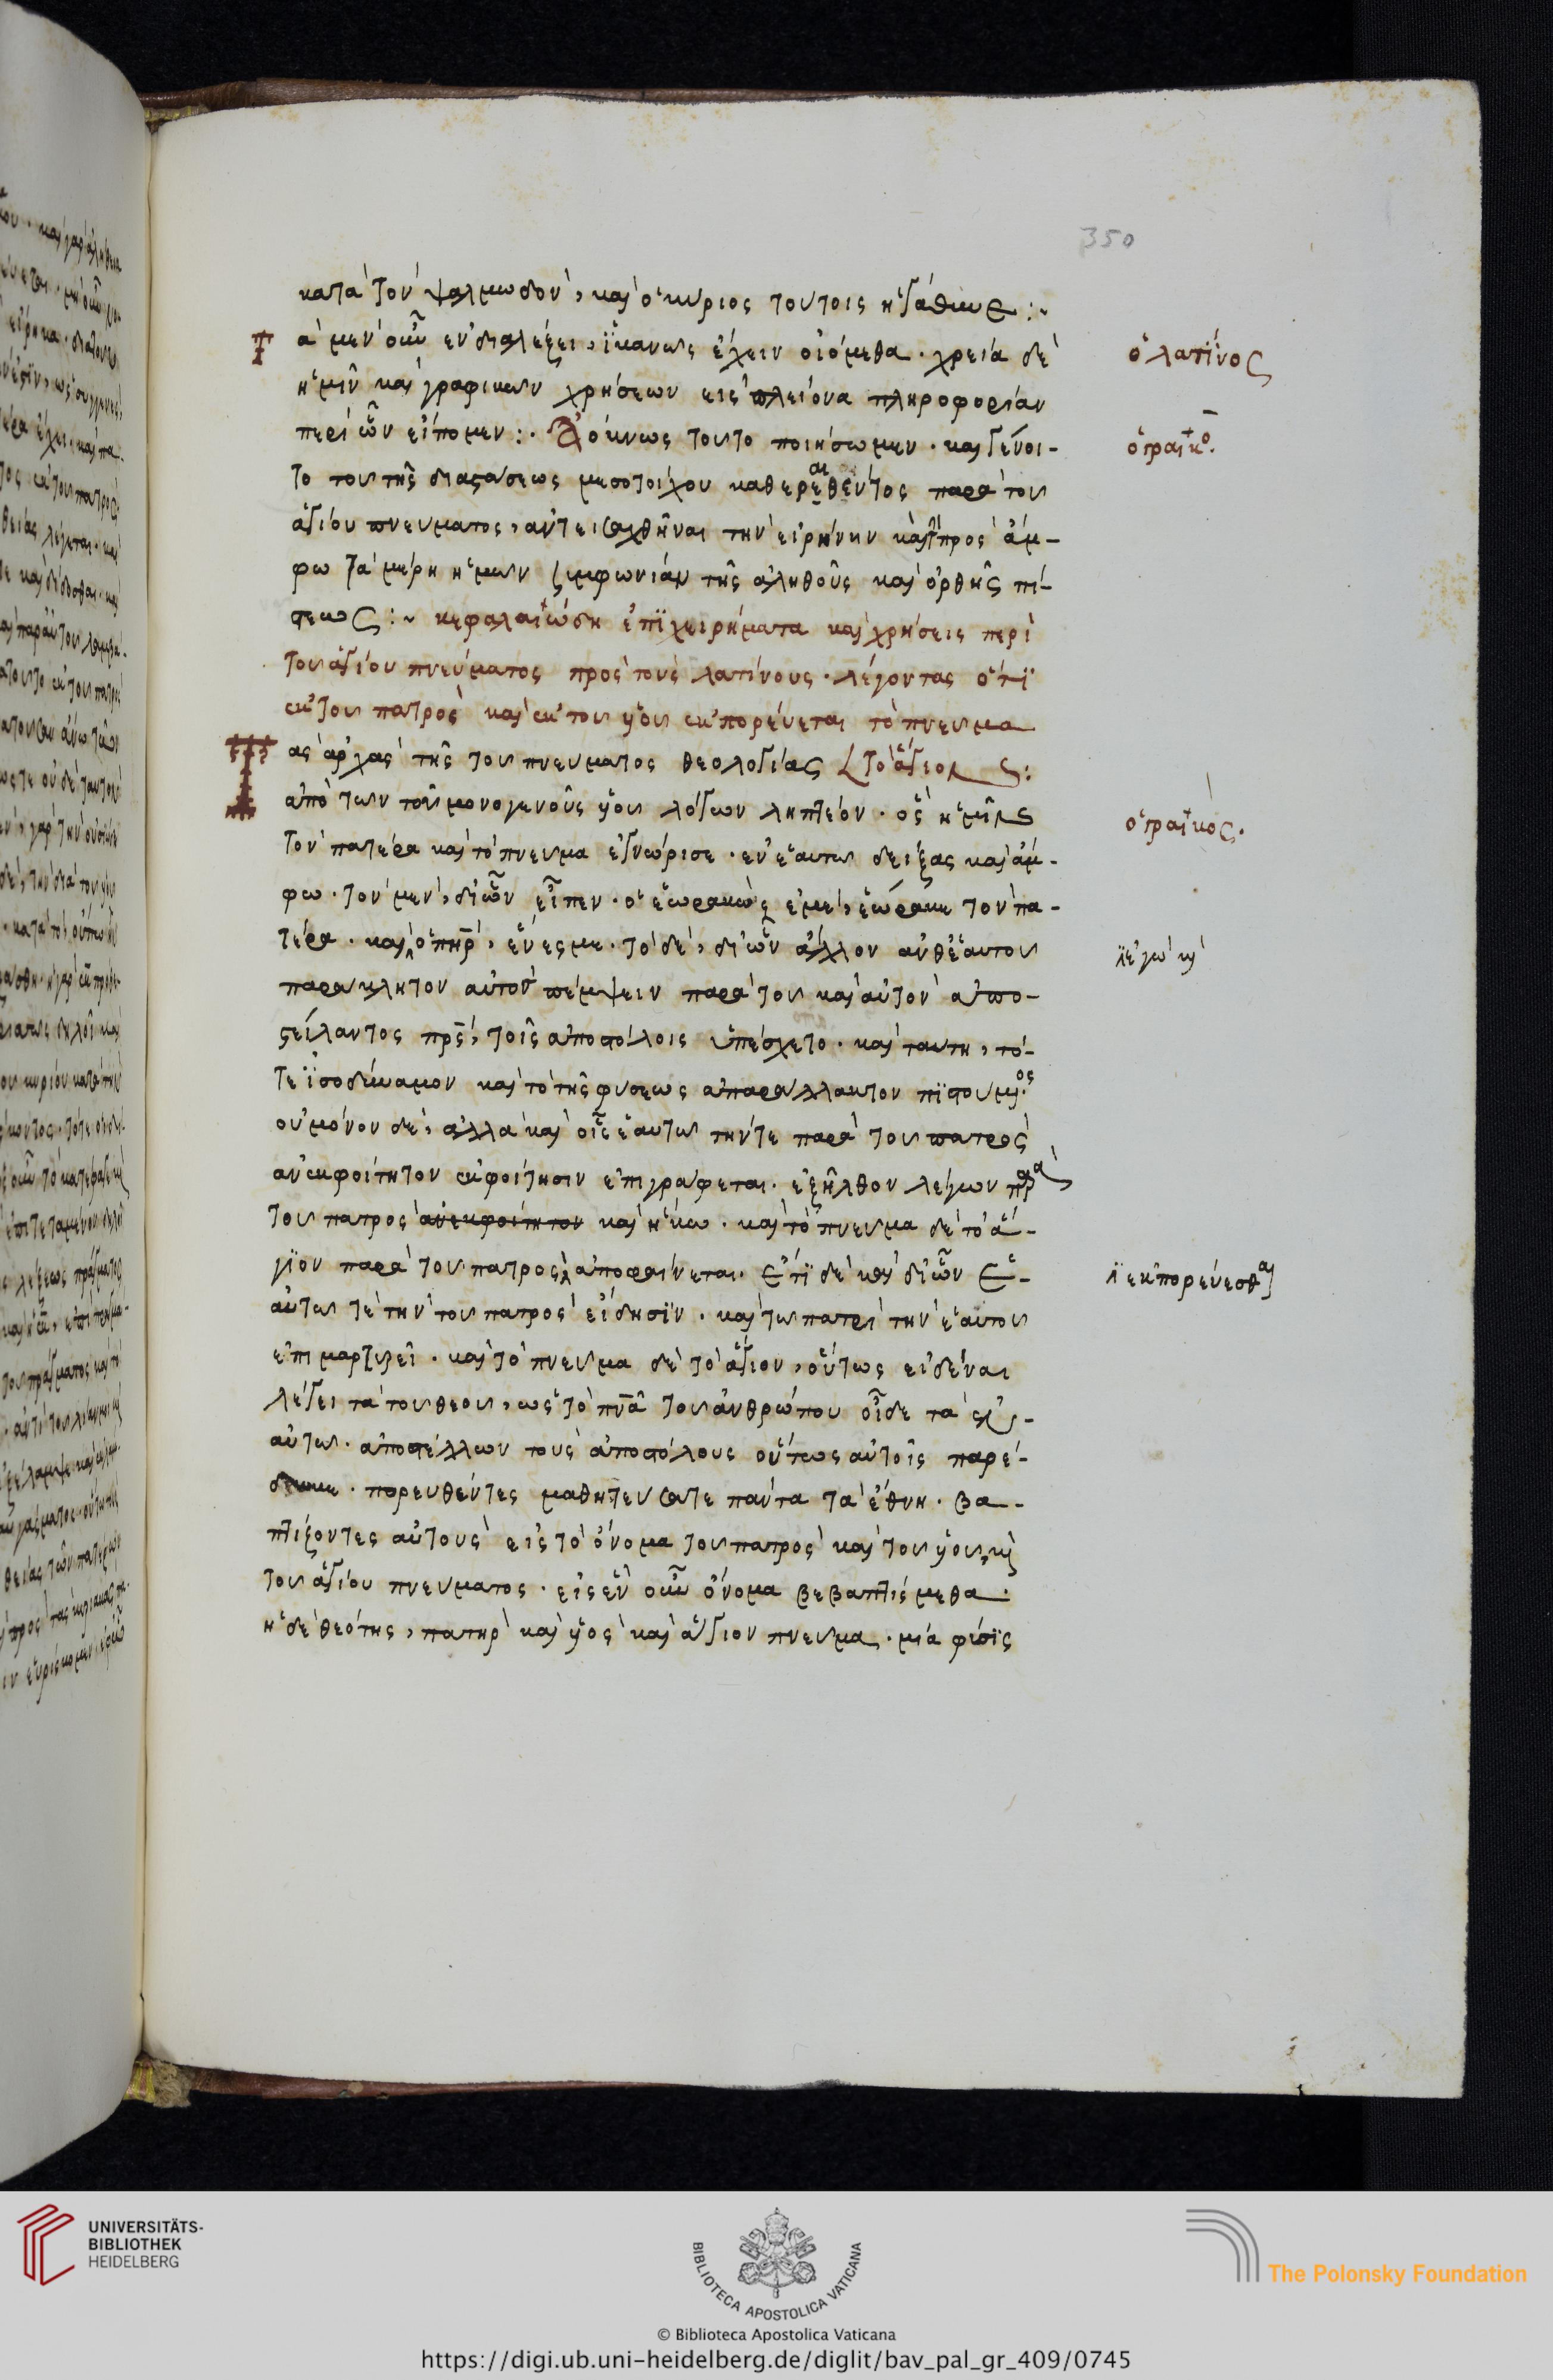 350
κατὰ τὸν ψαλμωδὸν, καὶ ὁ κύριος τούτοις
Τὰ μὲν οὖν ἐν διαλέξει, ἱκανῶς ἔχειν οἰόμεθα. χρεία δὲ
ὁ λατῖνος
ἡμῖν καὶ γραφικῶν χρήσεων εἰς πλείονα πληροφορίαν
περὶ ὧν εἴπομεν :. Ἀόκνως τοῦτο ποιήσωμεν. καὶ γένοι-
ὁ γραικο.
το τοῦ τῆς διαστάσεως μεσοτοίχου καθαιρεθέντος παρὰ τοῦ
ἁγίου πνεύματος, ἀντεισαχθῆναι τὴν εἰρήνην καὶ πρὸς ἄμ-
φω τὰ μέρη ἡμῶν συμφωνίαν τῆς ἀληθοῦς καὶ ὀρθῆς πί-
στεως :~ κεφαλαιώδη ἐπιχειρήματα καὶ χρήσεις περὶ
τοῦ ἁγίου πνεύματος πρὸς τοὺς λατίνους. λέγοντας ὅτι
ἐκ τοῦ πατρὸς καὶ ἐκ τοῦ υἱοῦ ἐκπορεύεται τὸ πνεῦμα
Τὰς ἀρχὰς τῆς τοῦ πνεύματος θεολογίας τὸ ἅγιον
ἀπὸ τῶν τοῦ μονογενοῦς υἱοῦ λόγων ληπτέον. ὃς ἡμῖν
ὁ γραικός.
τὸν πατέρα καὶ τὸ πνεῦμα ἐγνώρισε. ἐν ἑαυτῷ δείξας καὶ ἄμ-
φω. τὸν μὲν, δι' ὧν εἶπεν. ὁ ἑωρακὼς ἐμὲ, ἑώρακε τὸν πα-
τέρα. καὶ ὁ πηρ, ἕν ἐσμε. τὸ δὲ, δι' ὧν ἄλλον ἀνθ' ἑαυτοῦ
ἐγὼ καὶ
παράκλητον αὐτὸν πέμψειν παρὰ τοῦ καὶ αὐτὸν ἀπο-
στείλαντος πρς, τοῖς ἀποστόλοις ὑπέσχετο. καὶ ταύτη, τό-
τε ἰσοδύναμον καὶ τὸ τῆς φύσεως ἀπαράλλακτον πιστούμενος.
οὐ μόνον δὲ, ἀλλὰ καὶ οἷς ἑαυτῷ τήν τε παρὰ τοῦ πατρὸς
ἀνεκφοίτητον ἐκφοίτησιν ἐπιγράφεται. ἐξῆλθον λέγων παρὰ
τοῦ πατρὸς ἀνεκφοίτητον καὶ ἥκω. καὶ τὸ πνεῦμα δὲ τὸ ἅ-
γιον παρὰ τοῦ πατρὸς ἀποφαίνεται. ἔτι δὲ καὶ δι' ὧν ἑ-
ἐκπορεύεσθαι
αυτῷ τε τὴν τοῦ πατρὸς εἴδησιν. καὶ τῷ πατρὶ τὴν ἑαυτοῦ
ἐπιμαρτυρεῖ. καὶ τὸ πνεῦμα δὲ τὸ ἅγιον, οὕτως εἰδέναι
λέγει τὰ τοῦ θεοῦ, ὡς τὸ πνα τοῦ ἀνθρώπου οἶδε τὰ ἐν
αὐτῷ. ἀποστέλλων τοὺς ἀποστόλους οὕτως αὐτοῖς παρέ-
δωκε. πορευθέντες μαθητεύσατε πάντα τὰ ἔθνη. βα-
πτίζοντες αὐτοὺς εἰς τὸ ὄνομα τοῦ πατρὸς καὶ τοῦ υἱοῦ, καὶ
τοῦ ἁγίου πνεύματος. εἰς ἓν οὖν ὄνομα βεβαπτίσμεθα.
ἡ δὲ θεότης, πατὴρ καὶ υἱὸς καὶ ἅγιον πνεῦμα. μία φύσις
UNIVERSITÄTS-
BIBLIOTHEK
HEIDELBERG
BIBLIOTECA APOSTOLICA VATICANA
The Polonsky Foundation
© Biblioteca Apostolica Vaticana
https://digi.ub.uni-heidelberg.de/diglit/bav_pal_gr_409/0745